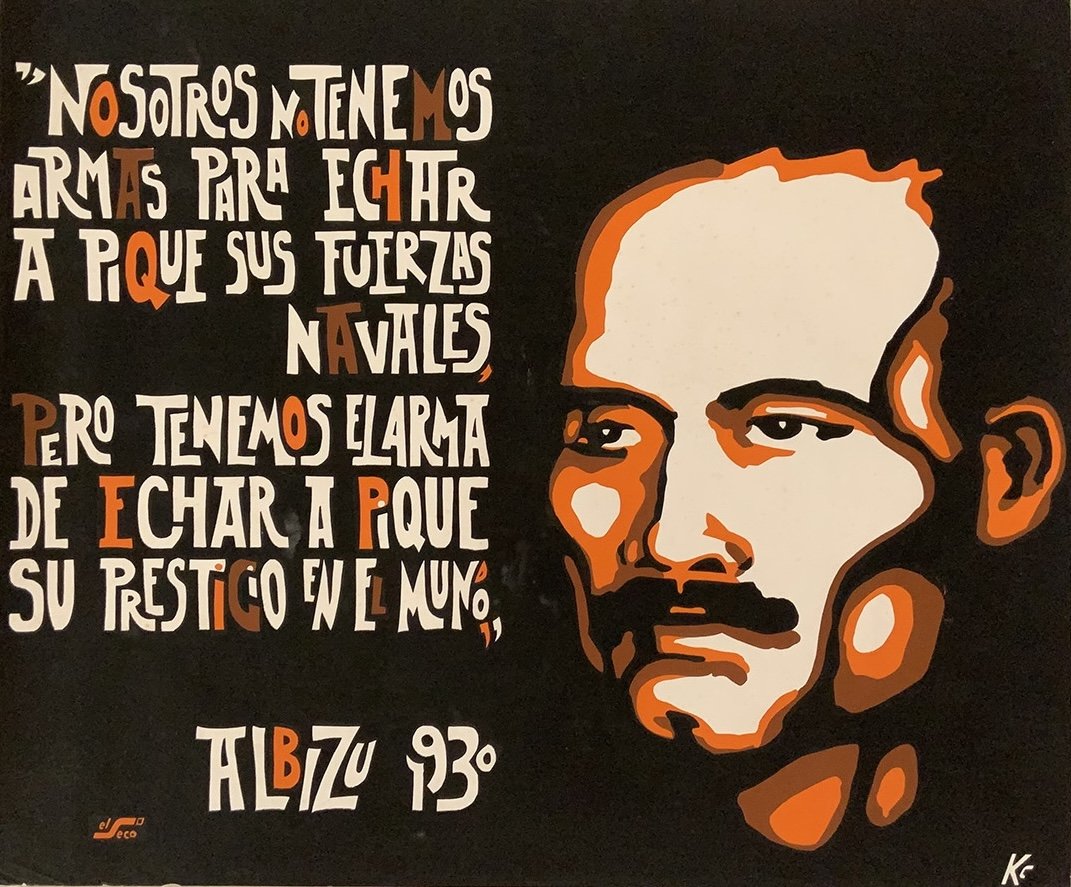 "NOSOTROS NO TENEMOS
ARMAS PARA ECHAR
A PIQUE SUS FUERZAS
NAVALES,
PERO TENEMOS EL ARMA
DE ECHAR A PIQUE
SU PRESTIGIO EN EL MUNDO,"
ALBIZU 1930
el Seco
Kc